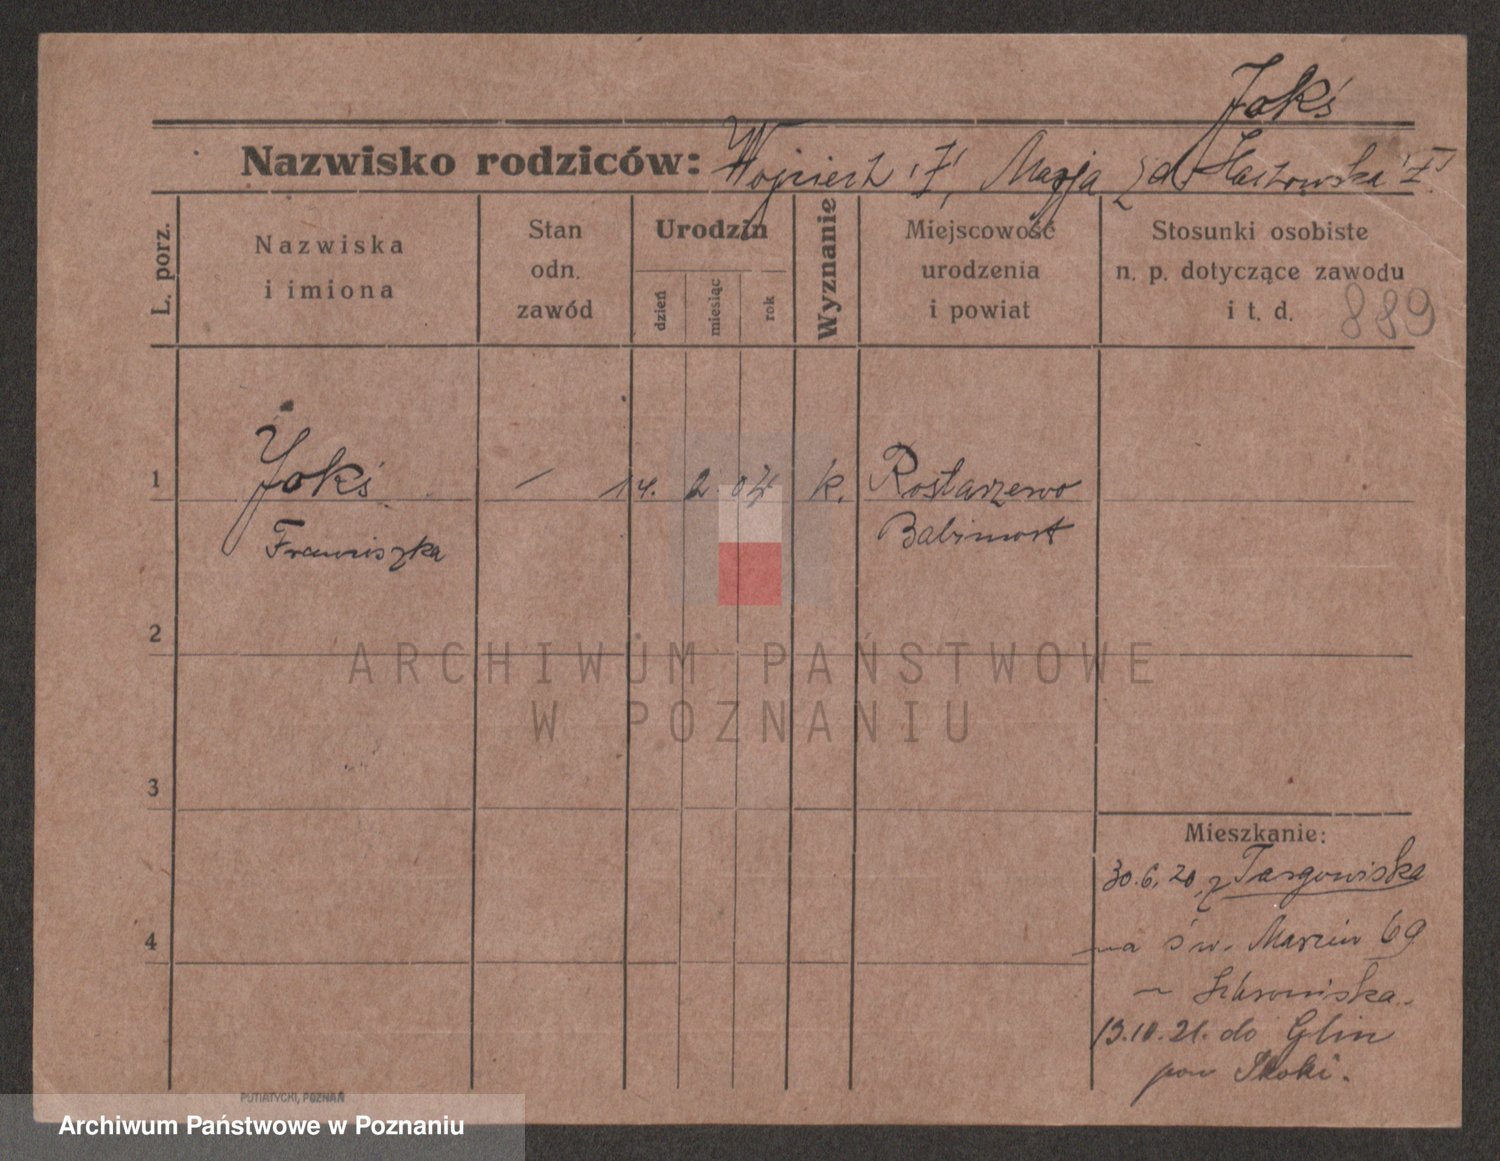 Jokś
Nazwisko rodziców: Wojciech 'Ż', Marja zd. 'Ż'
L. porz.
Nazwiska
i imiona
Stan
odn.
zawód
Urodzin
dzień
miesiąc
rok
Wyznanie
Miejscowość
urodzenia
i powiat
Stosunki osobiste
n. p. dotyczące zawodu
i t. d.
889
1
Jokś
Franciszka
14. 2 04
k.
Rostarzewo
Babimost
2
3
4
Mieszkanie:
30.6.20 z Targowiska
na św. Marcin 69
13.10.21. do Glin
pow Skoki.
PUTIATYCKI, POZNAŃ
ARCHIWUM PAŃSTWOWE
W POZNANIU
Archiwum Państwowe w Poznaniu